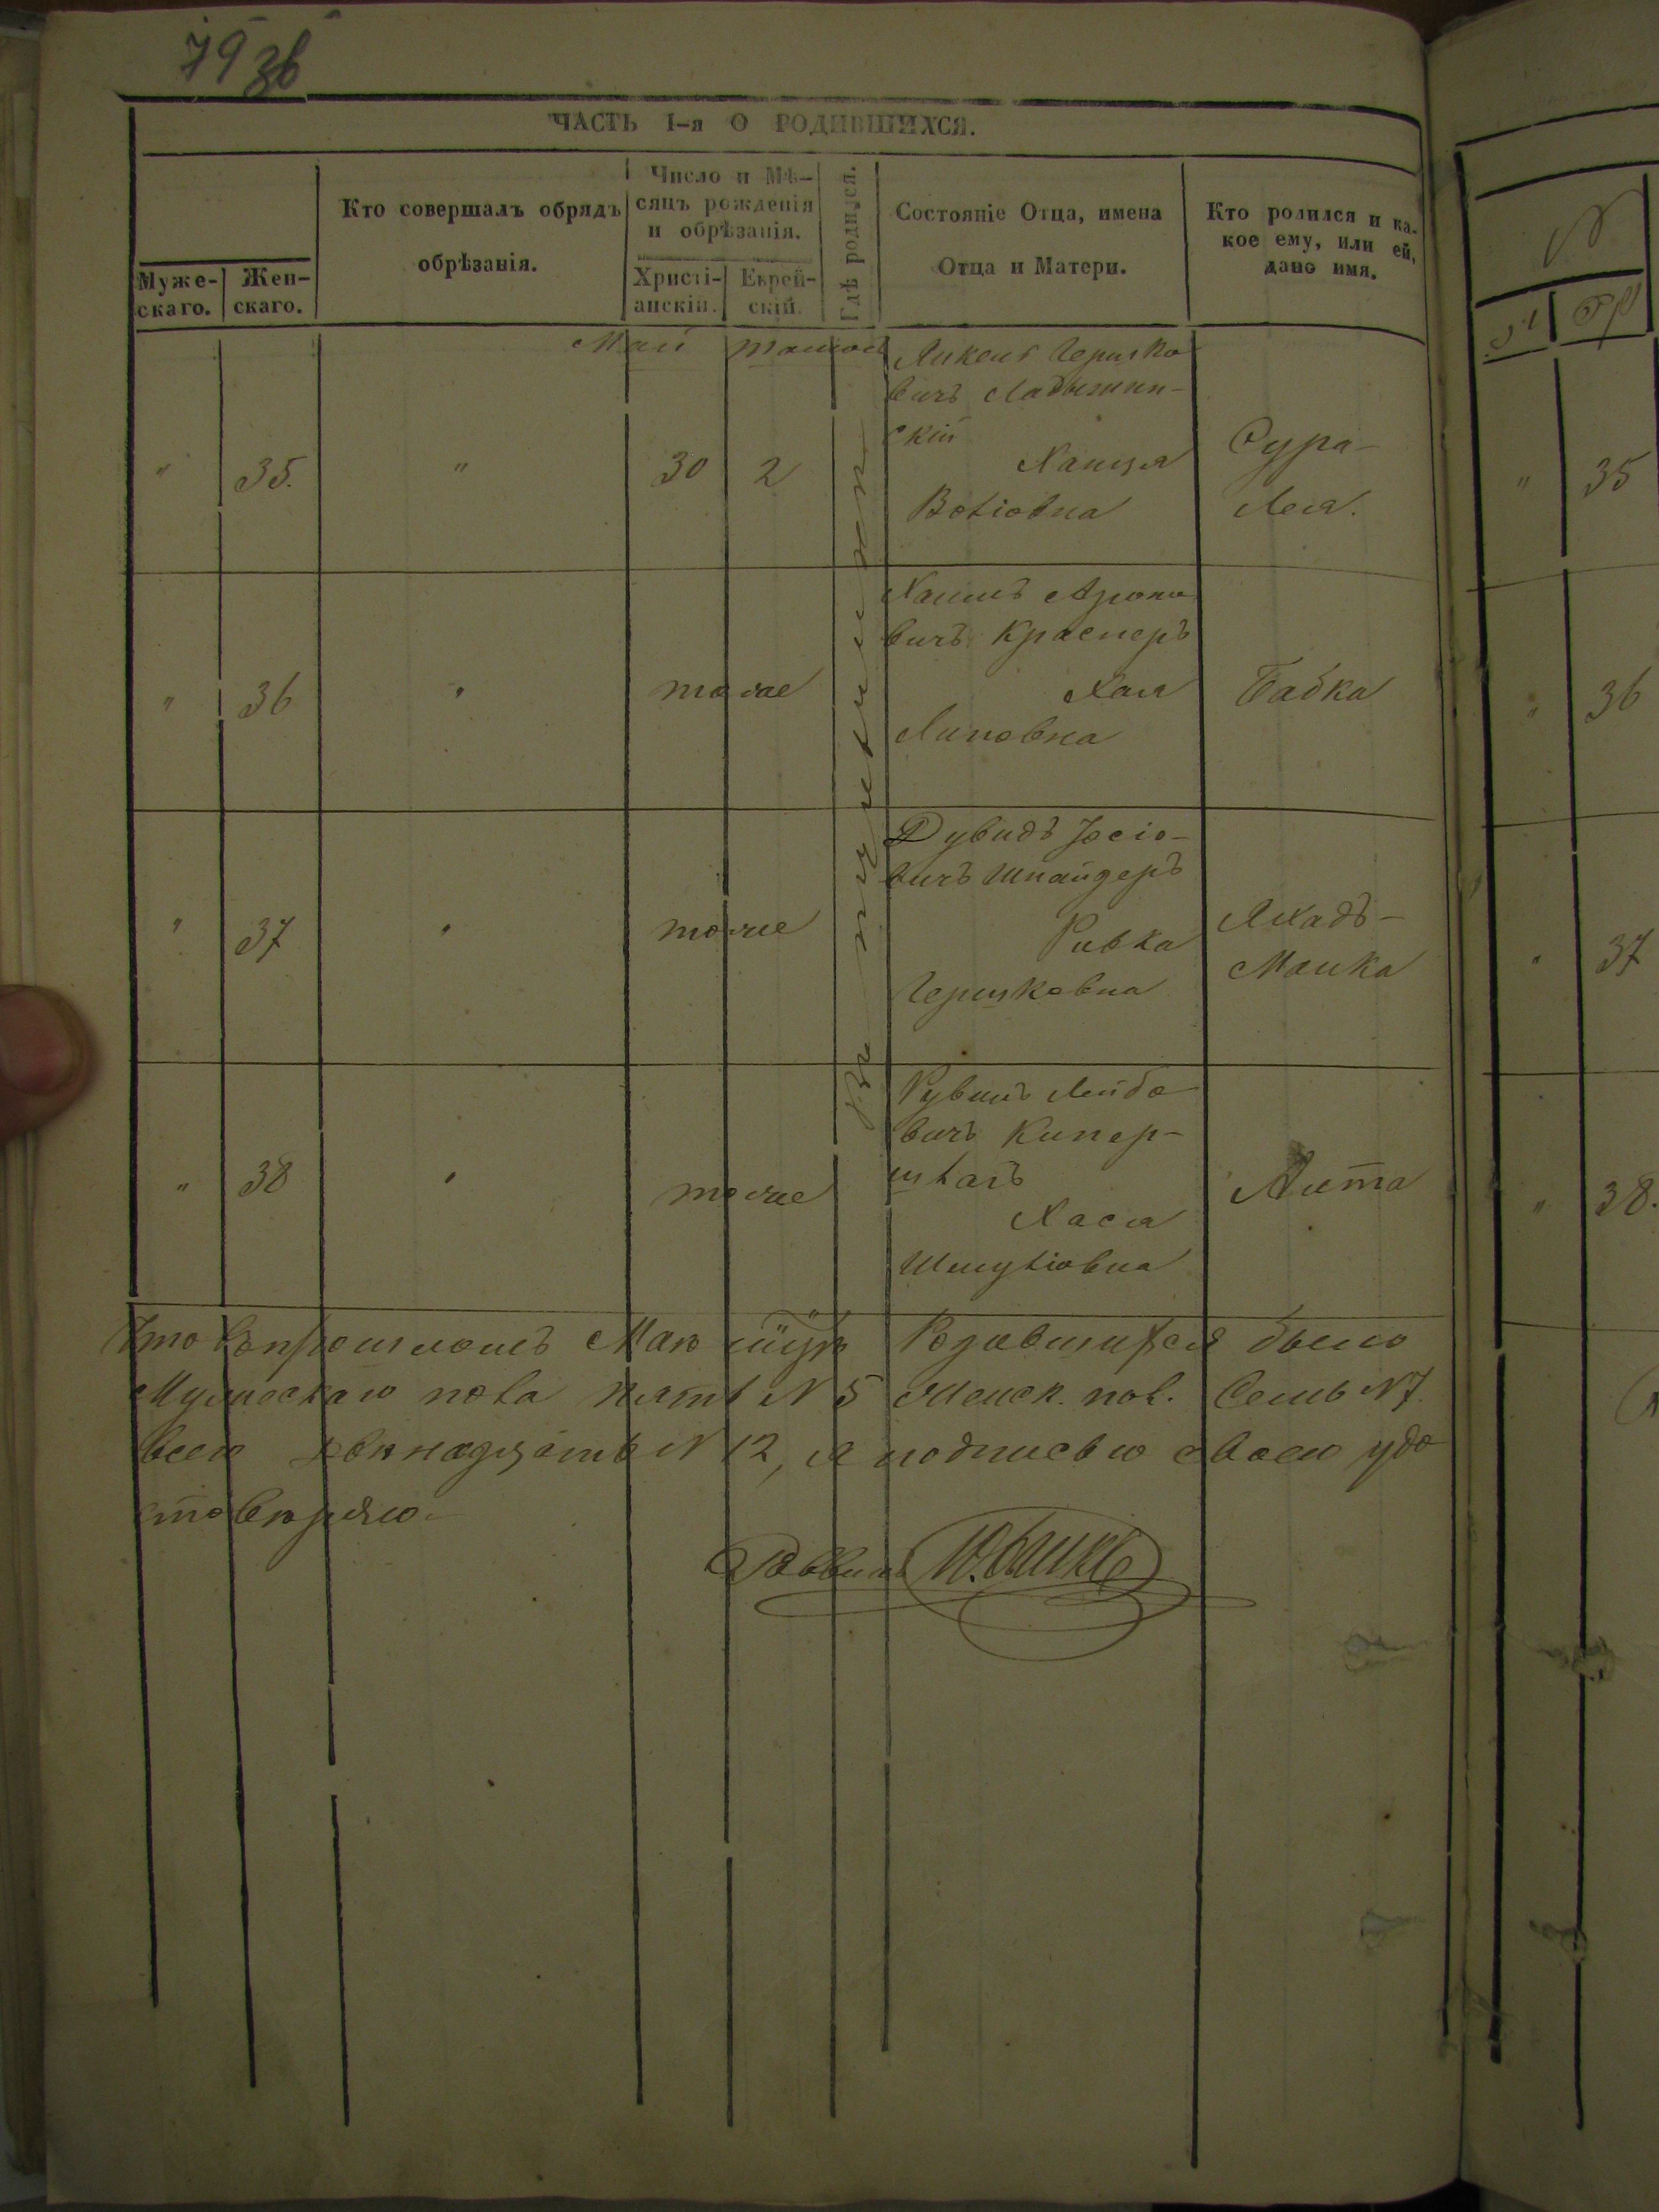 79 зв
ЧАСТЬ I-я О РОДИВШИХСЯ.
Муже-
скаго.
Жен-
скаго.
Кто совершалъ обрядъ
обрѣзанія.
Число и Мѣ-
сяцъ рожденія
и обрѣзанія.
Христі-
анскій.
Еврей-
скій.
Гдѣ родился.
Состояніе Отца, имена
Отца и Матери.
Кто родился и ка-
кое ему, или ей,
дано имя.
Май
" 35. " 30 2
Янкель Гершко
вичъ Ладыжин-
скій
Ханця
Сура-
Лея.
" 36 " тоже
Хаимъ Ароно
вичъ Краснеръ
Хая
Липовна
Бабка
" 37 " тоже
Дувидъ Іосіо-
вичъ Шнайдеръ
Ривка
Гершковна
Малка
" 38 " тоже
Рувинъ Лейбо
вичъ Купер-
Хася
Шмуліовна
Что въ прошломъ Маѣ Родившихся было
Мужескаго пола пять N 5 Женск. пол. Семь N 7.
всего двѣнадцать N 12, я подписью своею удо
стовѣряю.
Раввинъ
" 35
" 36
" 37
" 38.